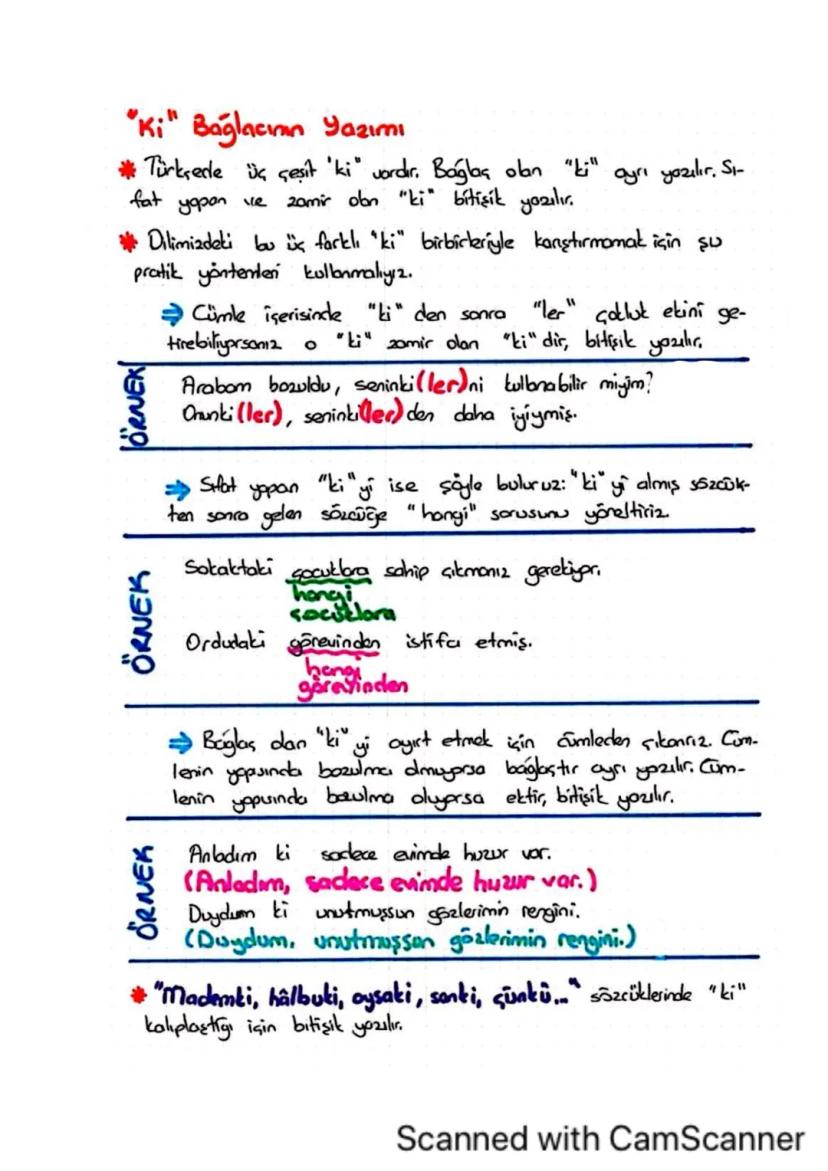 "Ki" Bağlacının Yazımı
* Türkçede üç çeşit "ki" vardır. Bağlaç olan "ki" ayrı yazılır. Sı-
fat yapan ve zamir olan "ki" bitişik yazılır.
* Dilimizdeki bu üç farklı "ki" birbirleriyle karıştırmamak için şu
pratik yöntemleri kullanmalıyız.
⇒ Cümle içerisinde "ki" den sonra "ler" çokluk ekini ge-
tirebiliyorsanız o "ki" zamir olan "ki" dir, bitişik yazılır.
ÖRNEK
Arabam bozuldu, seninki(ler)ni kullanabilir miyim?
Onunki(ler), seninki(ler)den daha iyiymiş.
⇒ Sıfat yapan "ki"yi ise şöyle buluruz: "ki" yi almış sözcük-
ten sonra gelen sözcüğe "hangi" sorusunu yöneltiriz.
ÖRNEK
Sokaktaki çocuklara sahip çıkmanız gerekiyor.
hangi
çocuklara
Ordudaki görevinden istifa etmiş.
hangi
görevinden
⇒ Bağlaç olan "ki" yi ayırt etmek için cümleden çıkarırız. Cüm-
lenin yapısında bozulma olmuyorsa bağlaçtır ayrı yazılır. Cüm-
lenin yapısında bozulma oluyorsa ektir, bitişik yazılır.
ÖRNEK
Anladım ki sadece evimde huzur var.
(Anladım, sadece evimde huzur var.)
Duydum ki unutmuşsun gözlerimin rengini.
(Duydum, unutmuşsun gözlerimin rengini.)
* "Mademki, hâlbuki, oysaki, sanki, çünkü..." sözcüklerinde "ki"
kalıplaştığı için bitişik yazılır.
Scanned with CamScanner